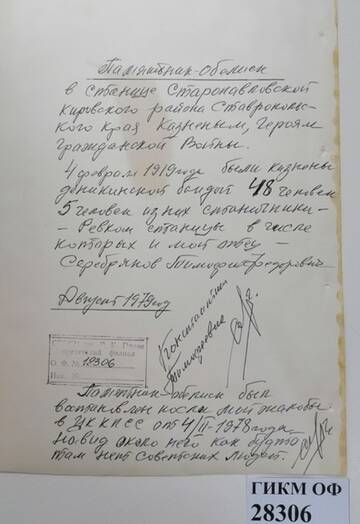 Памятник-обелиск
в станице Старопавловской
Кировского района Ставрополь-
ского края Казненым, героям
Гражданской Войны.
4 февраля 1919 года были казнены
деникинской бандой 48 человек
5 человек из них станичники -
- Ревком станицы в числе
которых и мой отец -
Серебряков Тимофей Федорович
Август 1979 год
Константин
Тимофеевич
О.Ф. № 19306
Памятник-обелиск был
востановлен после моей жалобы
в ЦК КПСС от 4/II-1978 года
на вид около него как будто
там нет Советских людей.
ГИКМ ОФ
28306